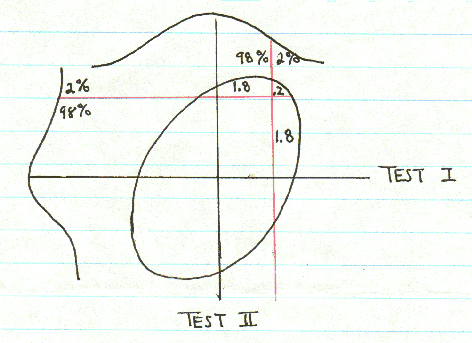 98% 2%
2%
98%
1.8 .2
1.8
TEST I
TEST II